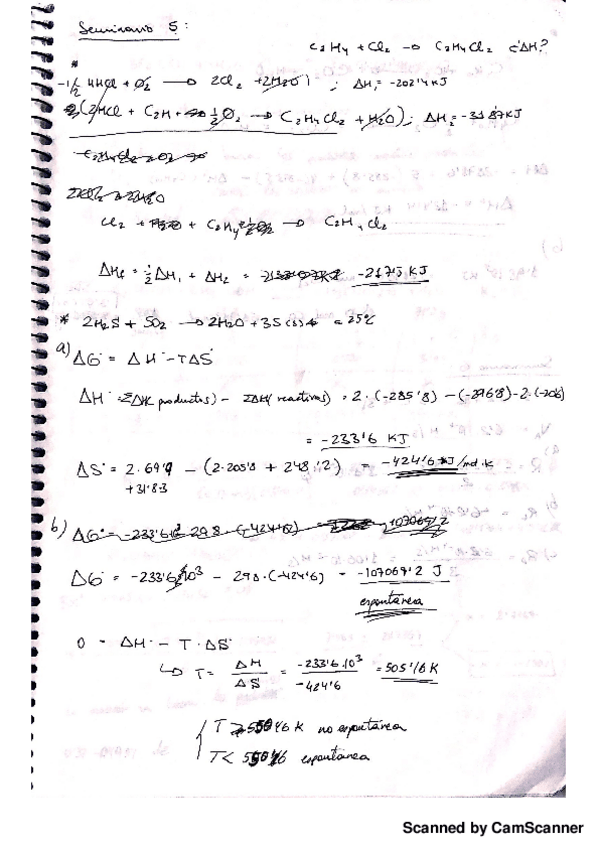 Seminario 5:
C2H4 + Cl2 → C2H4Cl2 ¿ΔH?
*
-1/2 4HCl + O2 → 2Cl2 + 2H2O ; ΔH1 = -202'4 KJ
(2HCl + C2H4 + 1/2 O2 → C2H4Cl2 + H2O); ΔH2 = -318'7 KJ
Cl2 + C2H4 → C2H4Cl2
ΔHR = 1/2 ΔH1 + ΔH2 = -217'5 KJ
* 2H2S + SO2 → 2H2O + 3S(s) = 25ºC
a) ΔG° = ΔH° - TΔS°
ΔH° = ΣΔH( productos) - ΣΔH( reactivos) = 2·(-285'8) - (-296'8) - 2·(-206)
= -233'6 KJ
ΔS° = 2·69'9 - (2·205'8 + 248'2) = -424'6 KJ/mol·K
+31'8·3
b) ΔG° = -233'6·10³ - 298·(-424'6) = -107069'2 J
espontánea
0 = ΔH° - T·ΔS°
↳ T = ΔH / ΔS = -233'6·10³ / -424'6 = 505'16 K
T > K no espontánea
T < espontánea
Scanned by CamScanner